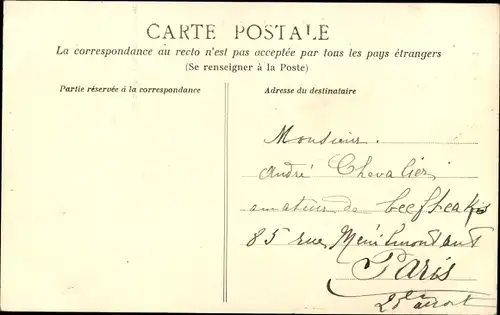 CARTE POSTALE
La correspondance au recto n'est pas acceptée par tous les pays étrangers
(Se renseigner à la Poste)
Partie réservée à la correspondance
Adresse du destinataire
Monsieur.
André Chevalier
amateur de beefteaks
85 rue Ménilmontant
Paris
20e arrot